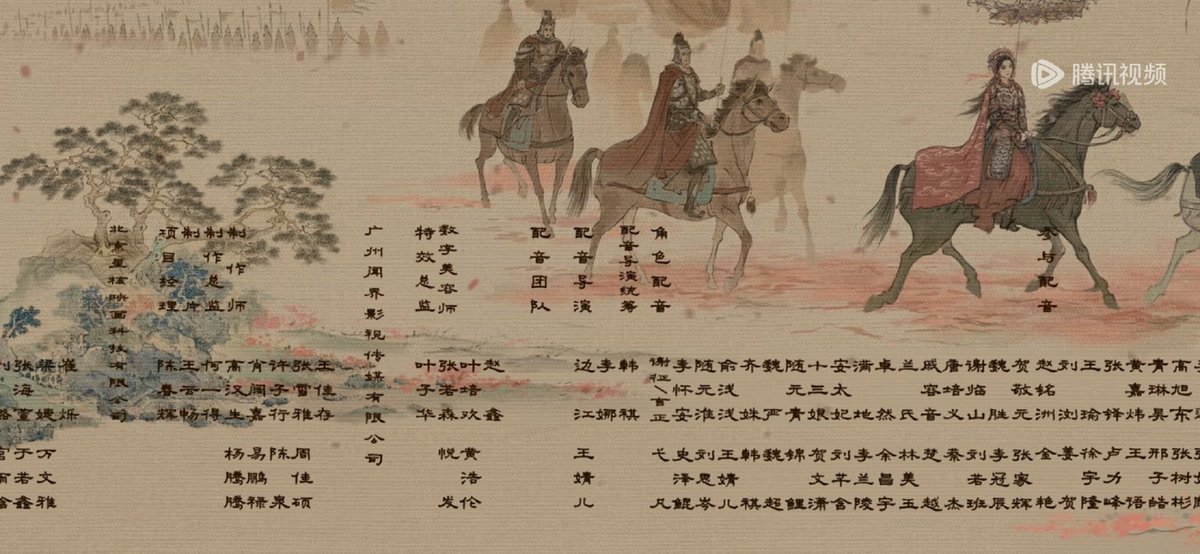 张海宣
于若鑫
梁婕
万文雅
崔烁
北京星核映画科技有限公司
项目经理
陈春辉
制片
王云畅
制作总监
何一得
制作师
高汉生
杨腾腾
肖阁嘉
易鹏禄
许子行
陈泉
张雪雅
周佳硕
王佳存
广州闻界影视传媒有限公司
特效总监
叶子华
数字美容师
张若森
悦发
叶培玖
黄浩伦
赵鑫
配音团队
配音导演
边江
王婧儿
李娜
配音导演统筹
韩祺
角色配音
谢征/言正
弋凡
李怀安
史泽鲲
随元淮
刘思岑
俞浅浅
王婧儿
齐姝
韩祺
魏严
魏超
随元青
锦鲤
十三娘
贺文潇
安太妃
刘芊含
满地
李兰陵
卓然
余昌宇
兰氏
林美玉
戚容音
楚越
唐培义
秦杰
谢临山
刘若班
魏胜
李冠辰
贺敬元
张家辉
参与配音
赵铭洲
金艳
刘浏
姜贺
王瑜
徐宇隆
张锋
卢力峰
黄嘉炜
王语
青琳昊
邢子皓
高旭东
张树彬
腾讯视频